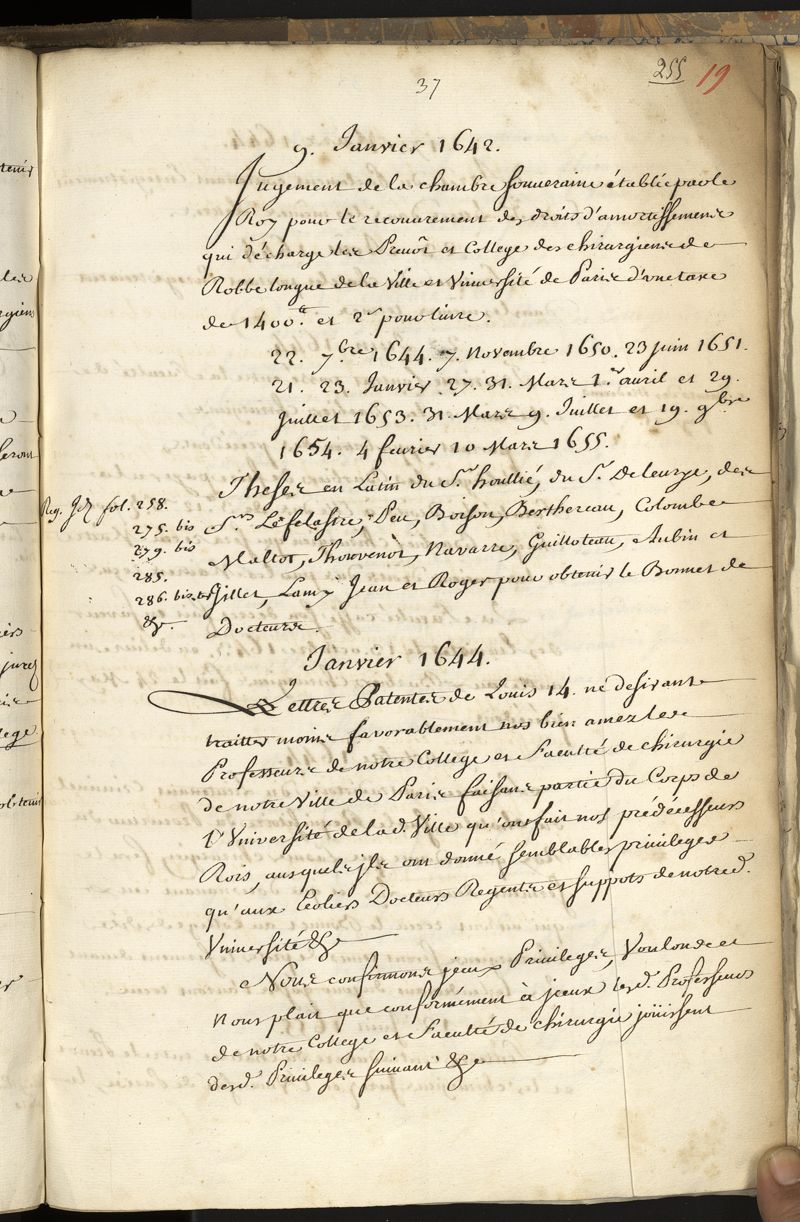 37
255 19
9. Janvier 1642.
Jugement de la chambre souueraine établie par le
Roy pour le recouurement des droits d'amortissemens
qui décharge les Preuôt et College des chirurgiens de
Robbe longue de la Ville et Vniuersité de Paris d'une taxe
de 1400.tt et 2s pour liure.
22. 7.bre 1644. 7. Novembre 1650. 23 juin 1651.
21. 23. Janvier. 27. 31. Mars 1.er auril et 29.
Juillet 1653. 31. Mars 9. Juillet et 19. 9bre
1654. 4 feurier 10 Mars 1655.
Theses en Latin du S.r houllié, du S.r Deleurye, des
Reg. fol. 258.
275. bis
279. bis
285.
286. bis. ter
&c.
S.rs Lefelastre, Peu, Boison, Berthereau, Colombe
Maltot, Thouvenot, Navarre, Guilloteau, Aubin et
Gillet, Lamy Jean et Roger pour obtenir le Bonnet de
Docteurs.
Janvier 1644.
Lettres Patentes de Louis 14. ne desirant
traitter moins favorablement nos bien amez les
Professeurs de notre College et Faculté de chirurgie
de notre Ville de Paris faisans partie du Corps de
l'Vniversité de lad. Ville qu'ont fait nos prédécesseurs
Rois, ausquels jls ont donné semblables priuileges
qu'aux Ecoliers Docteurs Regents et suppots de notred.
Vniuersité &c
Nous confirmons jceux Priuileges, Voulons et
nous plait que conformément à jceux lesd. Professeurs
de notre College et Faculté de chirurgie joüissent
desd. Priuileges suiuant &c